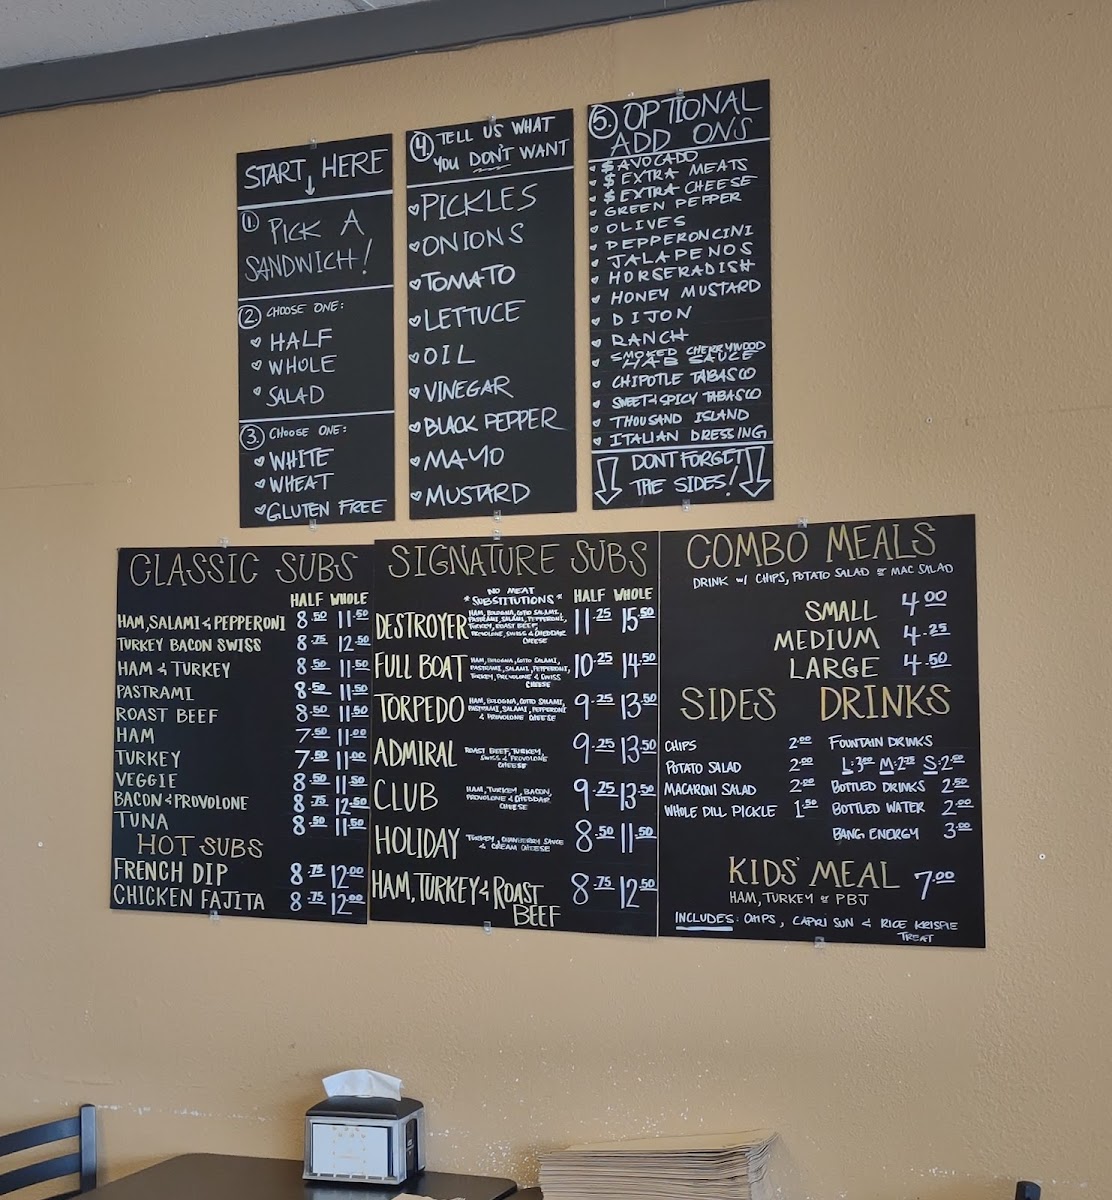 START HERE
↓
1. PICK A
SANDWICH!
2. CHOOSE ONE:
HALF
WHOLE
SALAD
3. CHOOSE ONE:
WHITE
WHEAT
GLUTEN FREE
4. TELL US WHAT
YOU DON'T WANT
PICKLES
ONIONS
TOMATO
LETTUCE
OIL
VINEGAR
BLACK PEPPER
MAYO
MUSTARD
5. OPTIONAL
ADD ONS
$ AVOCADO
$ EXTRA MEATS
$ EXTRA CHEESE
GREEN PEPPER
OLIVES
PEPPERONCINI
JALAPENOS
HORSERADISH
HONEY MUSTARD
DIJON
RANCH
SMOKED CHERRYWOOD
HAB SAUCE
CHIPOTLE TABASCO
SWEET & SPICY TABASCO
THOUSAND ISLAND
ITALIAN DRESSING
DONT FORGET
THE SIDES!
CLASSIC SUBS
HALF WHOLE
HAM, SALAMI & PEPPERONI 8.50 11.50
TURKEY BACON SWISS 8.75 12.50
HAM & TURKEY 8.50 11.50
PASTRAMI 8.50 11.50
ROAST BEEF 8.50 11.50
HAM 7.50 11.00
TURKEY 7.50 11.00
VEGGIE 8.50 11.50
BACON & PROVOLONE 8.75 12.50
TUNA 8.50 11.50
HOT SUBS
FRENCH DIP 8.75 12.00
CHICKEN FAJITA 8.75 12.00
SIGNATURE SUBS
NO MEAT
*SUBSTITUTIONS* HALF WHOLE
DESTROYER HAM, BOLOGNA, COTTO SALAMI,
PASTRAMI, SALAMI, PEPPERONI,
TURKEY, ROAST BEEF,
PROVOLONE, SWISS & CHEDDAR
CHEESE 11.25 15.50
FULL BOAT HAM, BOLOGNA, COTTO SALAMI,
PASTRAMI, SALAMI, PEPPERONI,
TURKEY, PROVOLONE & SWISS
CHEESE 10.25 14.50
TORPEDO HAM, BOLOGNA, COTTO SALAMI,
PASTRAMI, SALAMI, PEPPERONI
& PROVOLONE CHEESE 9.25 13.50
ADMIRAL ROAST BEEF, TURKEY,
SWISS & PROVOLONE
CHEESE 9.25 13.50
CLUB HAM, TURKEY, BACON,
PROVOLONE & CHEDDAR
CHEESE 9.25 13.50
HOLIDAY TURKEY, CRANBERRY SAUCE
& CREAM CHEESE 8.50 11.50
HAM, TURKEY & ROAST
BEEF 8.75 12.50
COMBO MEALS
DRINK w/ CHIPS, POTATO SALAD or MAC SALAD
SMALL 4.00
MEDIUM 4.25
LARGE 4.50
SIDES
CHIPS 2.00
POTATO SALAD 2.00
MACARONI SALAD 2.00
WHOLE DILL PICKLE 1.50
DRINKS
FOUNTAIN DRINKS
L: 3.00 M: 2.75 S: 2.50
BOTTLED DRINKS 2.50
BOTTLED WATER 2.00
BANG ENERGY 3.00
KIDS' MEAL 7.00
HAM, TURKEY or PBJ
INCLUDES: CHIPS, CAPRI SUN & RICE KRISPIE
TREAT